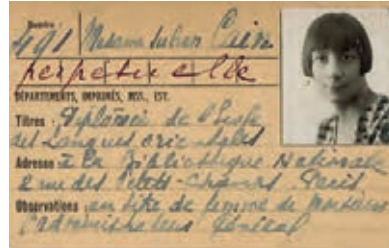 Numéro :
491 Madame Julien Cain
perpétuelle
DÉPARTEMENTS, IMPRIMÉS, MSS., EST.
Titres : Diplômée de l'École
des Langues orientales
Adresse à la Bibliothèque Nationale
2 rue des Petits-Champs Paris
Observations en titre de femme de Monsieur
l'Administrateur Général